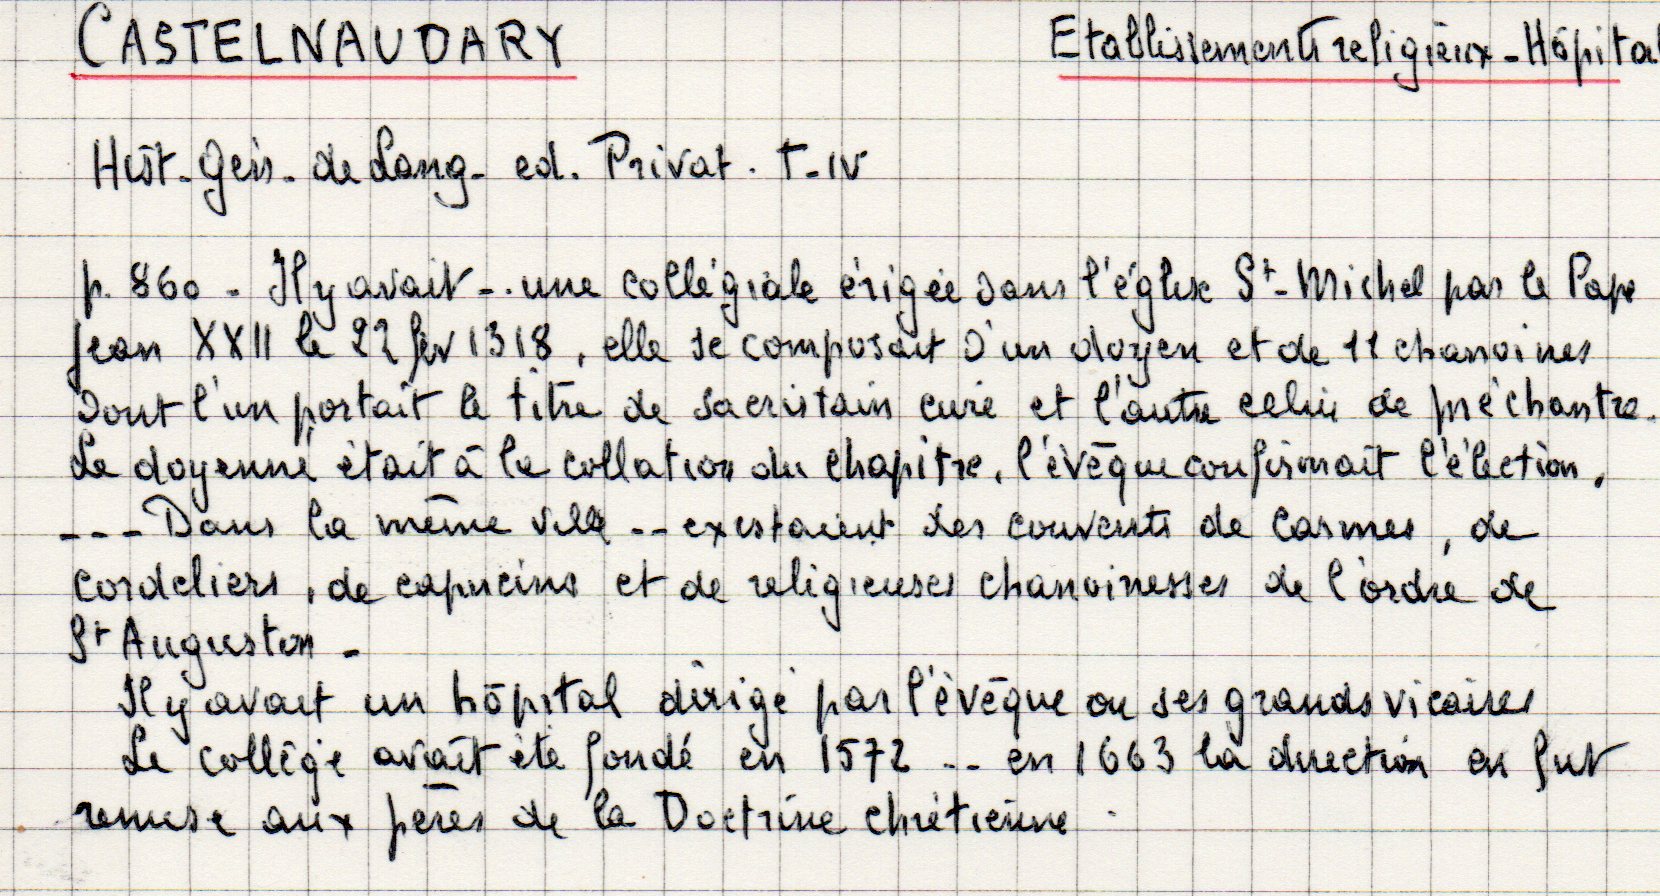 CASTELNAUDARY Etablissements religieux - Hôpital
Hist. Gén. de Lang. ed. Privat. T. IV
p. 860 - Il y avait -.. une collégiale érigée dans l'église St-Michel par le Pape
Jean XXII le 22 fev 1318, elle se composait d'un doyen et de 11 chanoines
dont l'un portait le titre de sacristain curé et l'autre celui de préchantre.
Le doyenné était à la collation du chapitre, l'évêque confirmait l'élection.
--- Dans la même ville -- existaient des couvents de Carmes, de
cordeliers, de capucins et de religieuses chanoinesses de l'ordre de
St Augustin -
Il y avait un hôpital dirigé par l'évêque ou ses grands vicaires
Le collège avait été fondé en 1572 -- en 1663 la direction en fut
remise aux pères de la Doctrine chrétienne.